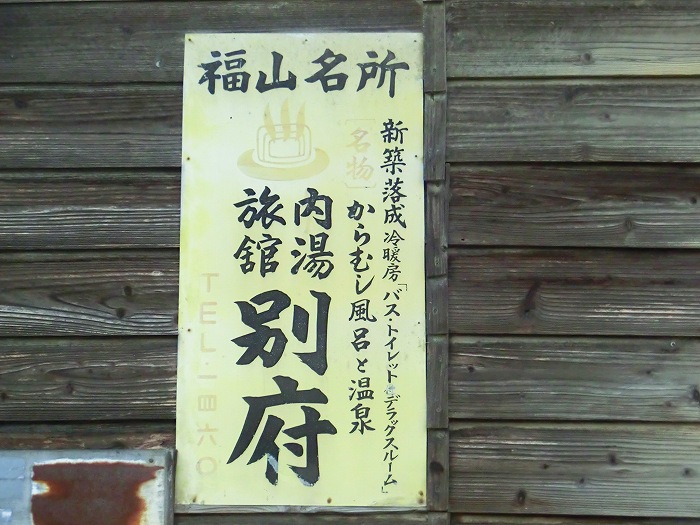 福山名所
新築落成冷暖房「バス・トイレット デラックスルーム」
［名物］からむし風呂と温泉
内湯
旅舘
別府
TEL・一四六〇